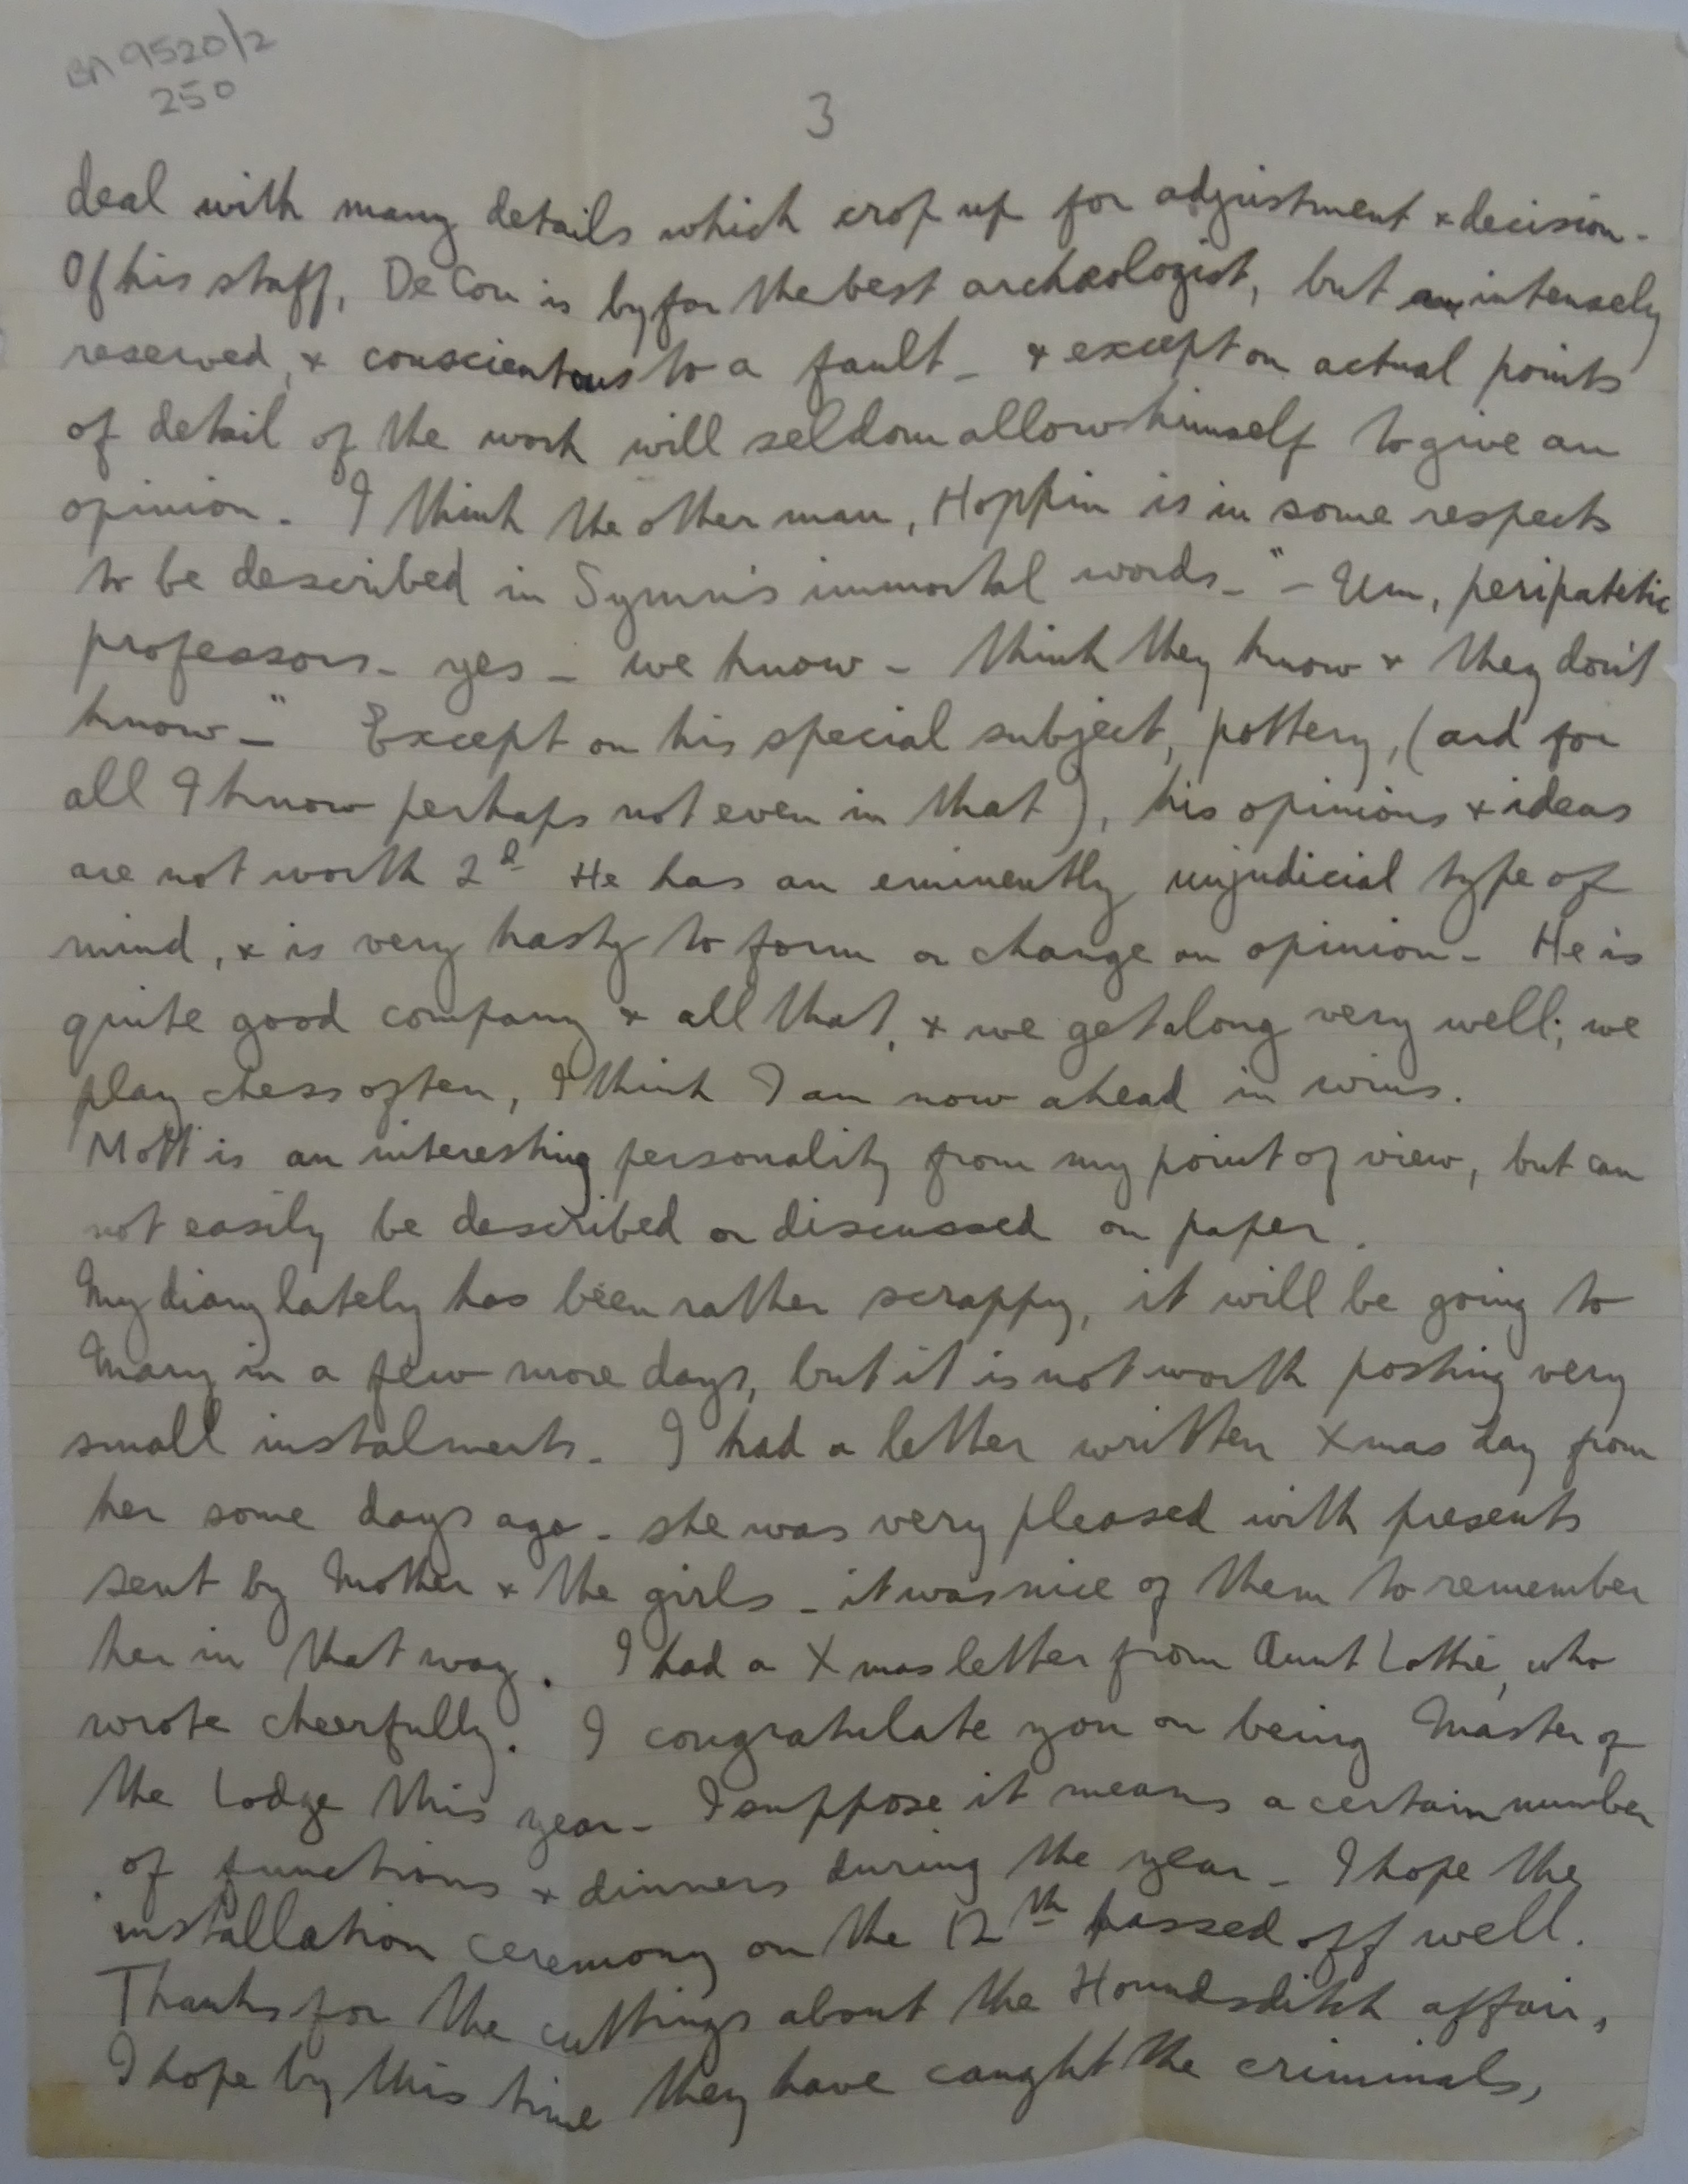 BA 9520/2
250
3
deal with many details which crop up for adjustment & decision -
Of his staff, De Cou is by far the best archæologist, but intensely
reserved, & conscientous to a fault - & except on actual points
of detail of the work will seldom allow himself to give an
opinion. I think the other man, Hoppin is in some respects
to be described in Symn's immortal words - "- Um, peripatetic
professors - yes - we know - think they know & they don't
know -" Except on his special subject, pottery, (and for
all I know perhaps not even in that), his opinions & ideas
are not worth 2d He has an eminently unjudicial type of
mind, & is very hasty to form or change an opinion - He is
quite good company & all that, & we get along very well; we
play chess often, I think I am now ahead in wins.
Mott is an interesting personality from my point of view, but can
not easily be described or discussed on paper.
My diary lately has been rather scrappy, it will be going to
Mary in a few more days, but it is not worth posting very
small instalments. I had a letter written Xmas day from
her some days ago - she was very pleased with presents
sent by Mother & the girls - it was nice of them to remember
her in that way. I had a Xmas letter from Aunt Lottie, who
wrote cheerfully. I congratulate you on being Master of
the Lodge this year - I suppose it means a certain number
of functions & dinners during the year - I hope the
installation ceremony on the 12th passed off well.
Thanks for the cuttings about the Houndsditch affair,
I hope by this time they have caught the criminals,